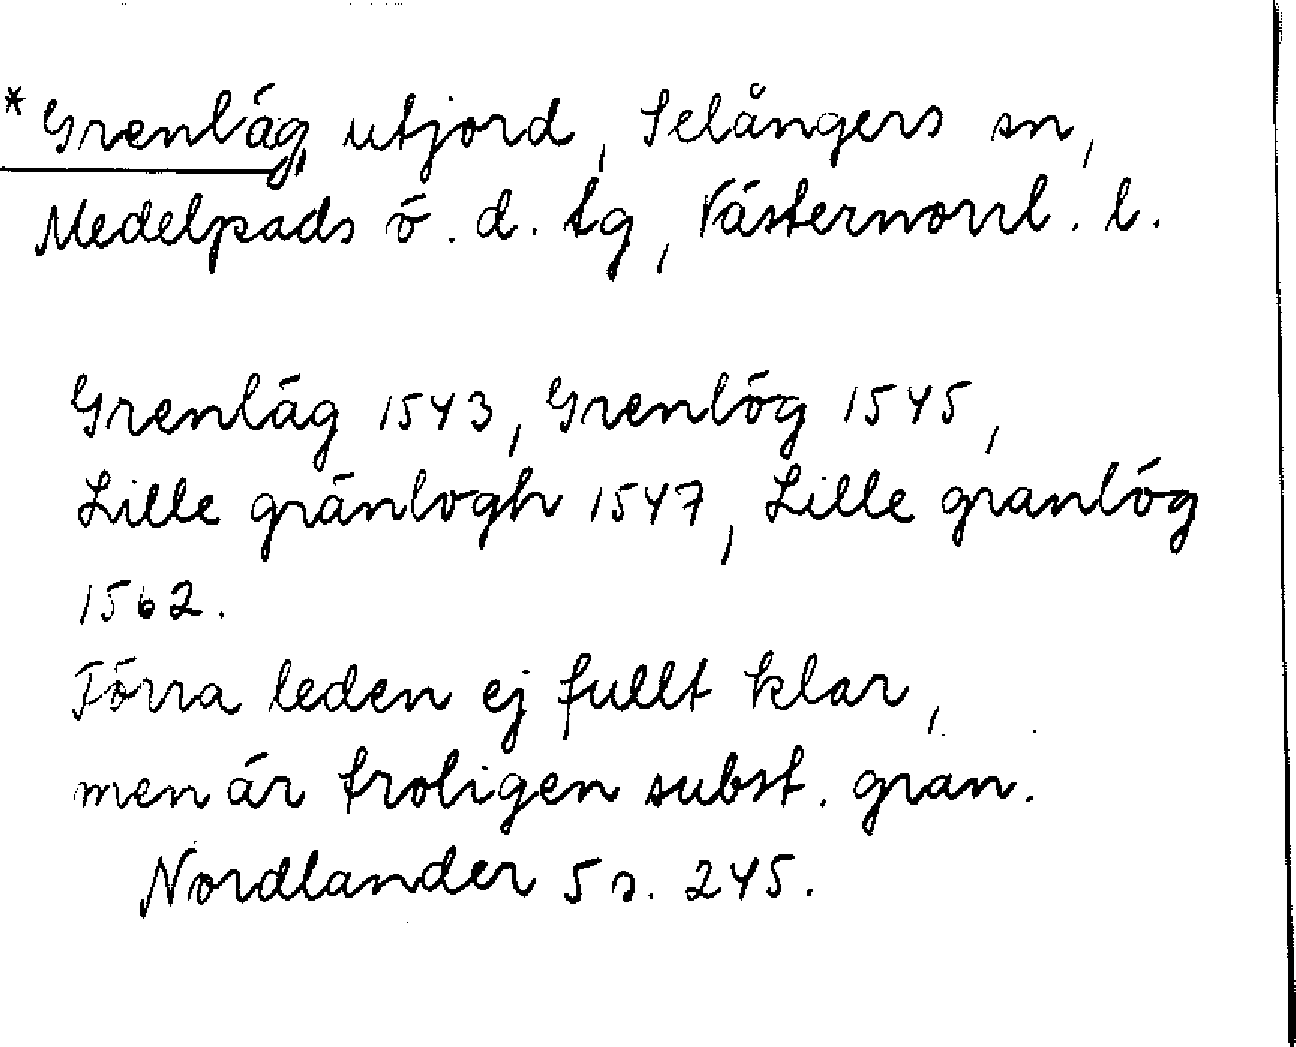 *Grenläg, utjord, Selångers sn,
Medelpads ö. d. tg, Västernorrl. l.
Grenläg 1543, Grenlög 1545,
Lille gränlogh 1547, Lille granlög
1562.
Förra leden ej fullt klar,
men är troligen subst. gran.
Nordlander 5 s. 245.